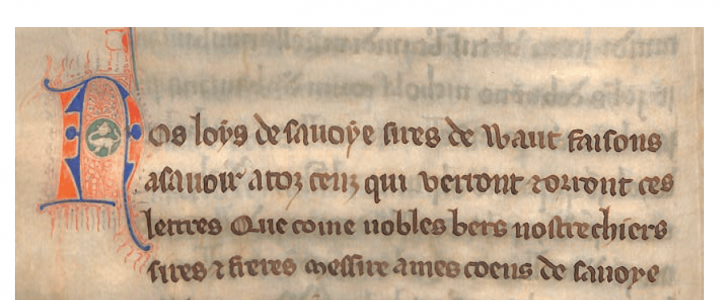 Nos loys de sauoye sires de Waut faisons
asauoir a toz ceuz qui verront ⁊ orront ces
lettres Que come nobles bers nostre chiers
sires ⁊ freres messire ames coens de sauoye